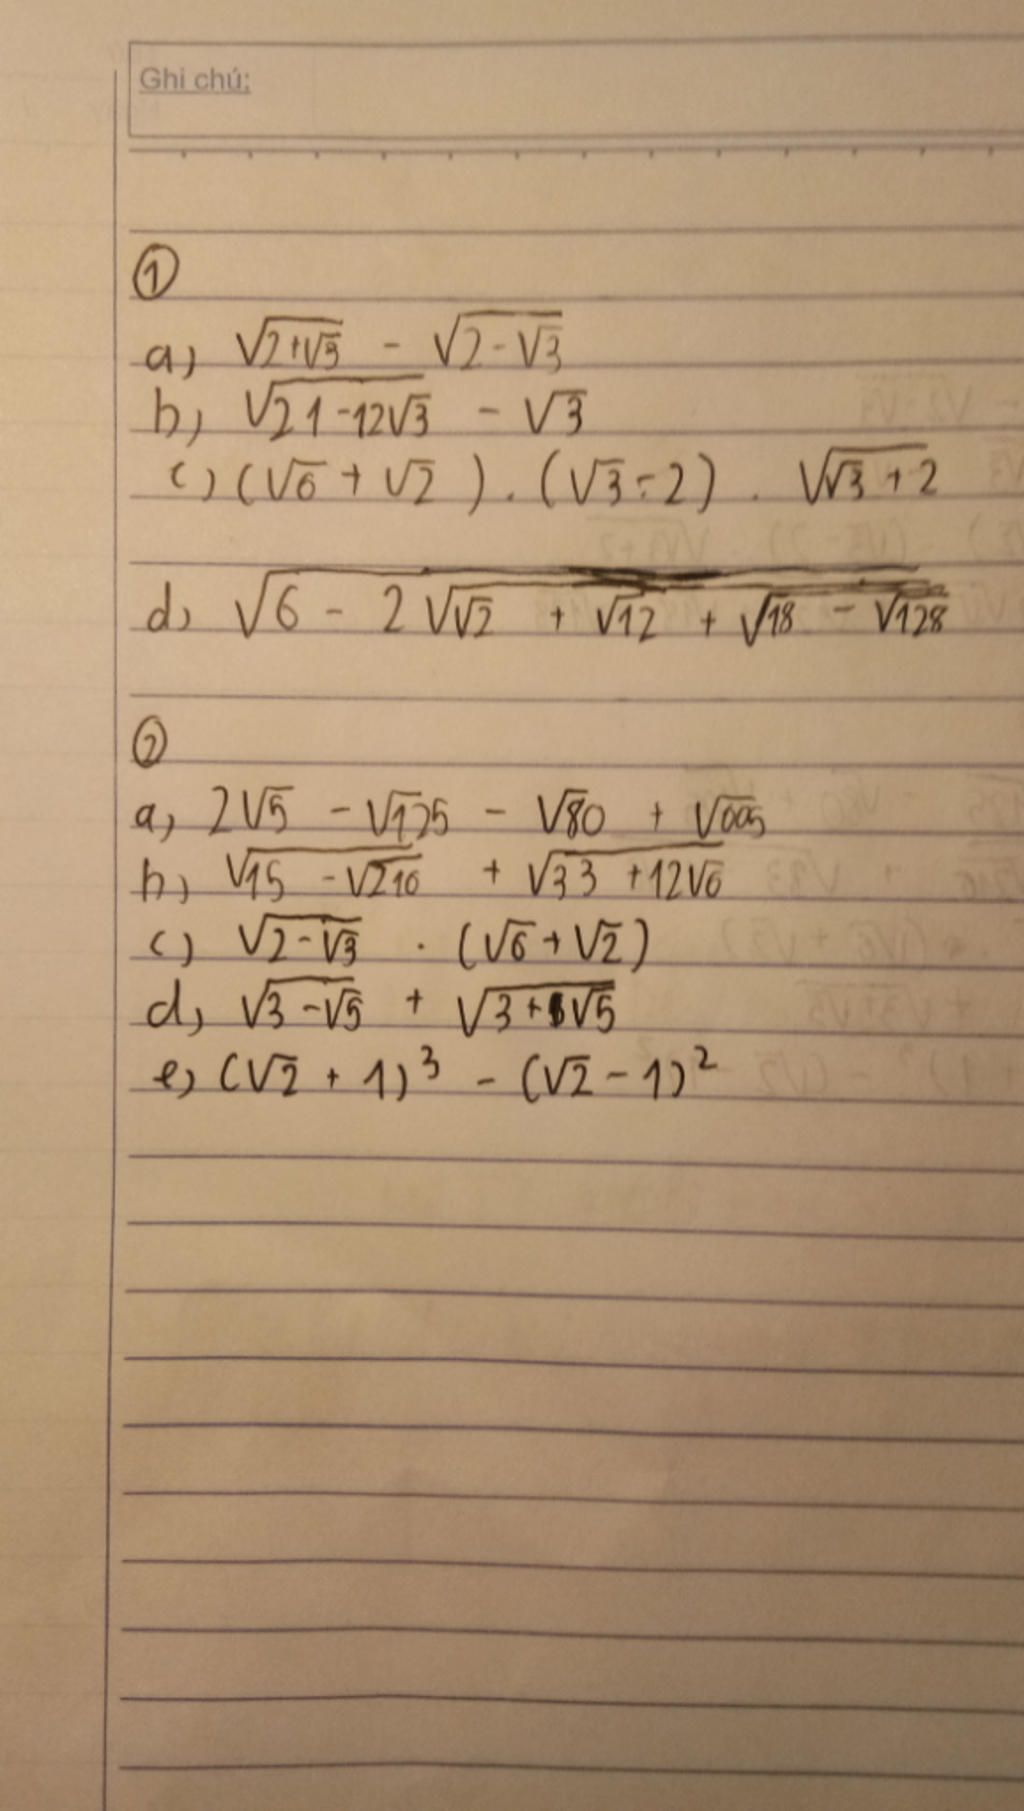 Ghi chú:
①
a) √(2+√3) - √(2-√3)
b) √(21-12√3) - √3
c) (√6 + √2) . (√3-2) . √(√3+2)
d) √(6 - 2√(√2 + √12 + √18 - √128))
②
a) 2√5 - √125 - √80 + √605
b) √(15 - √216) + √(33 + 12√6)
c) √(2-√3) . (√6+√2)
d) √(3-√5) + √(3+√5)
e) (√2 + 1)³ - (√2 - 1)²